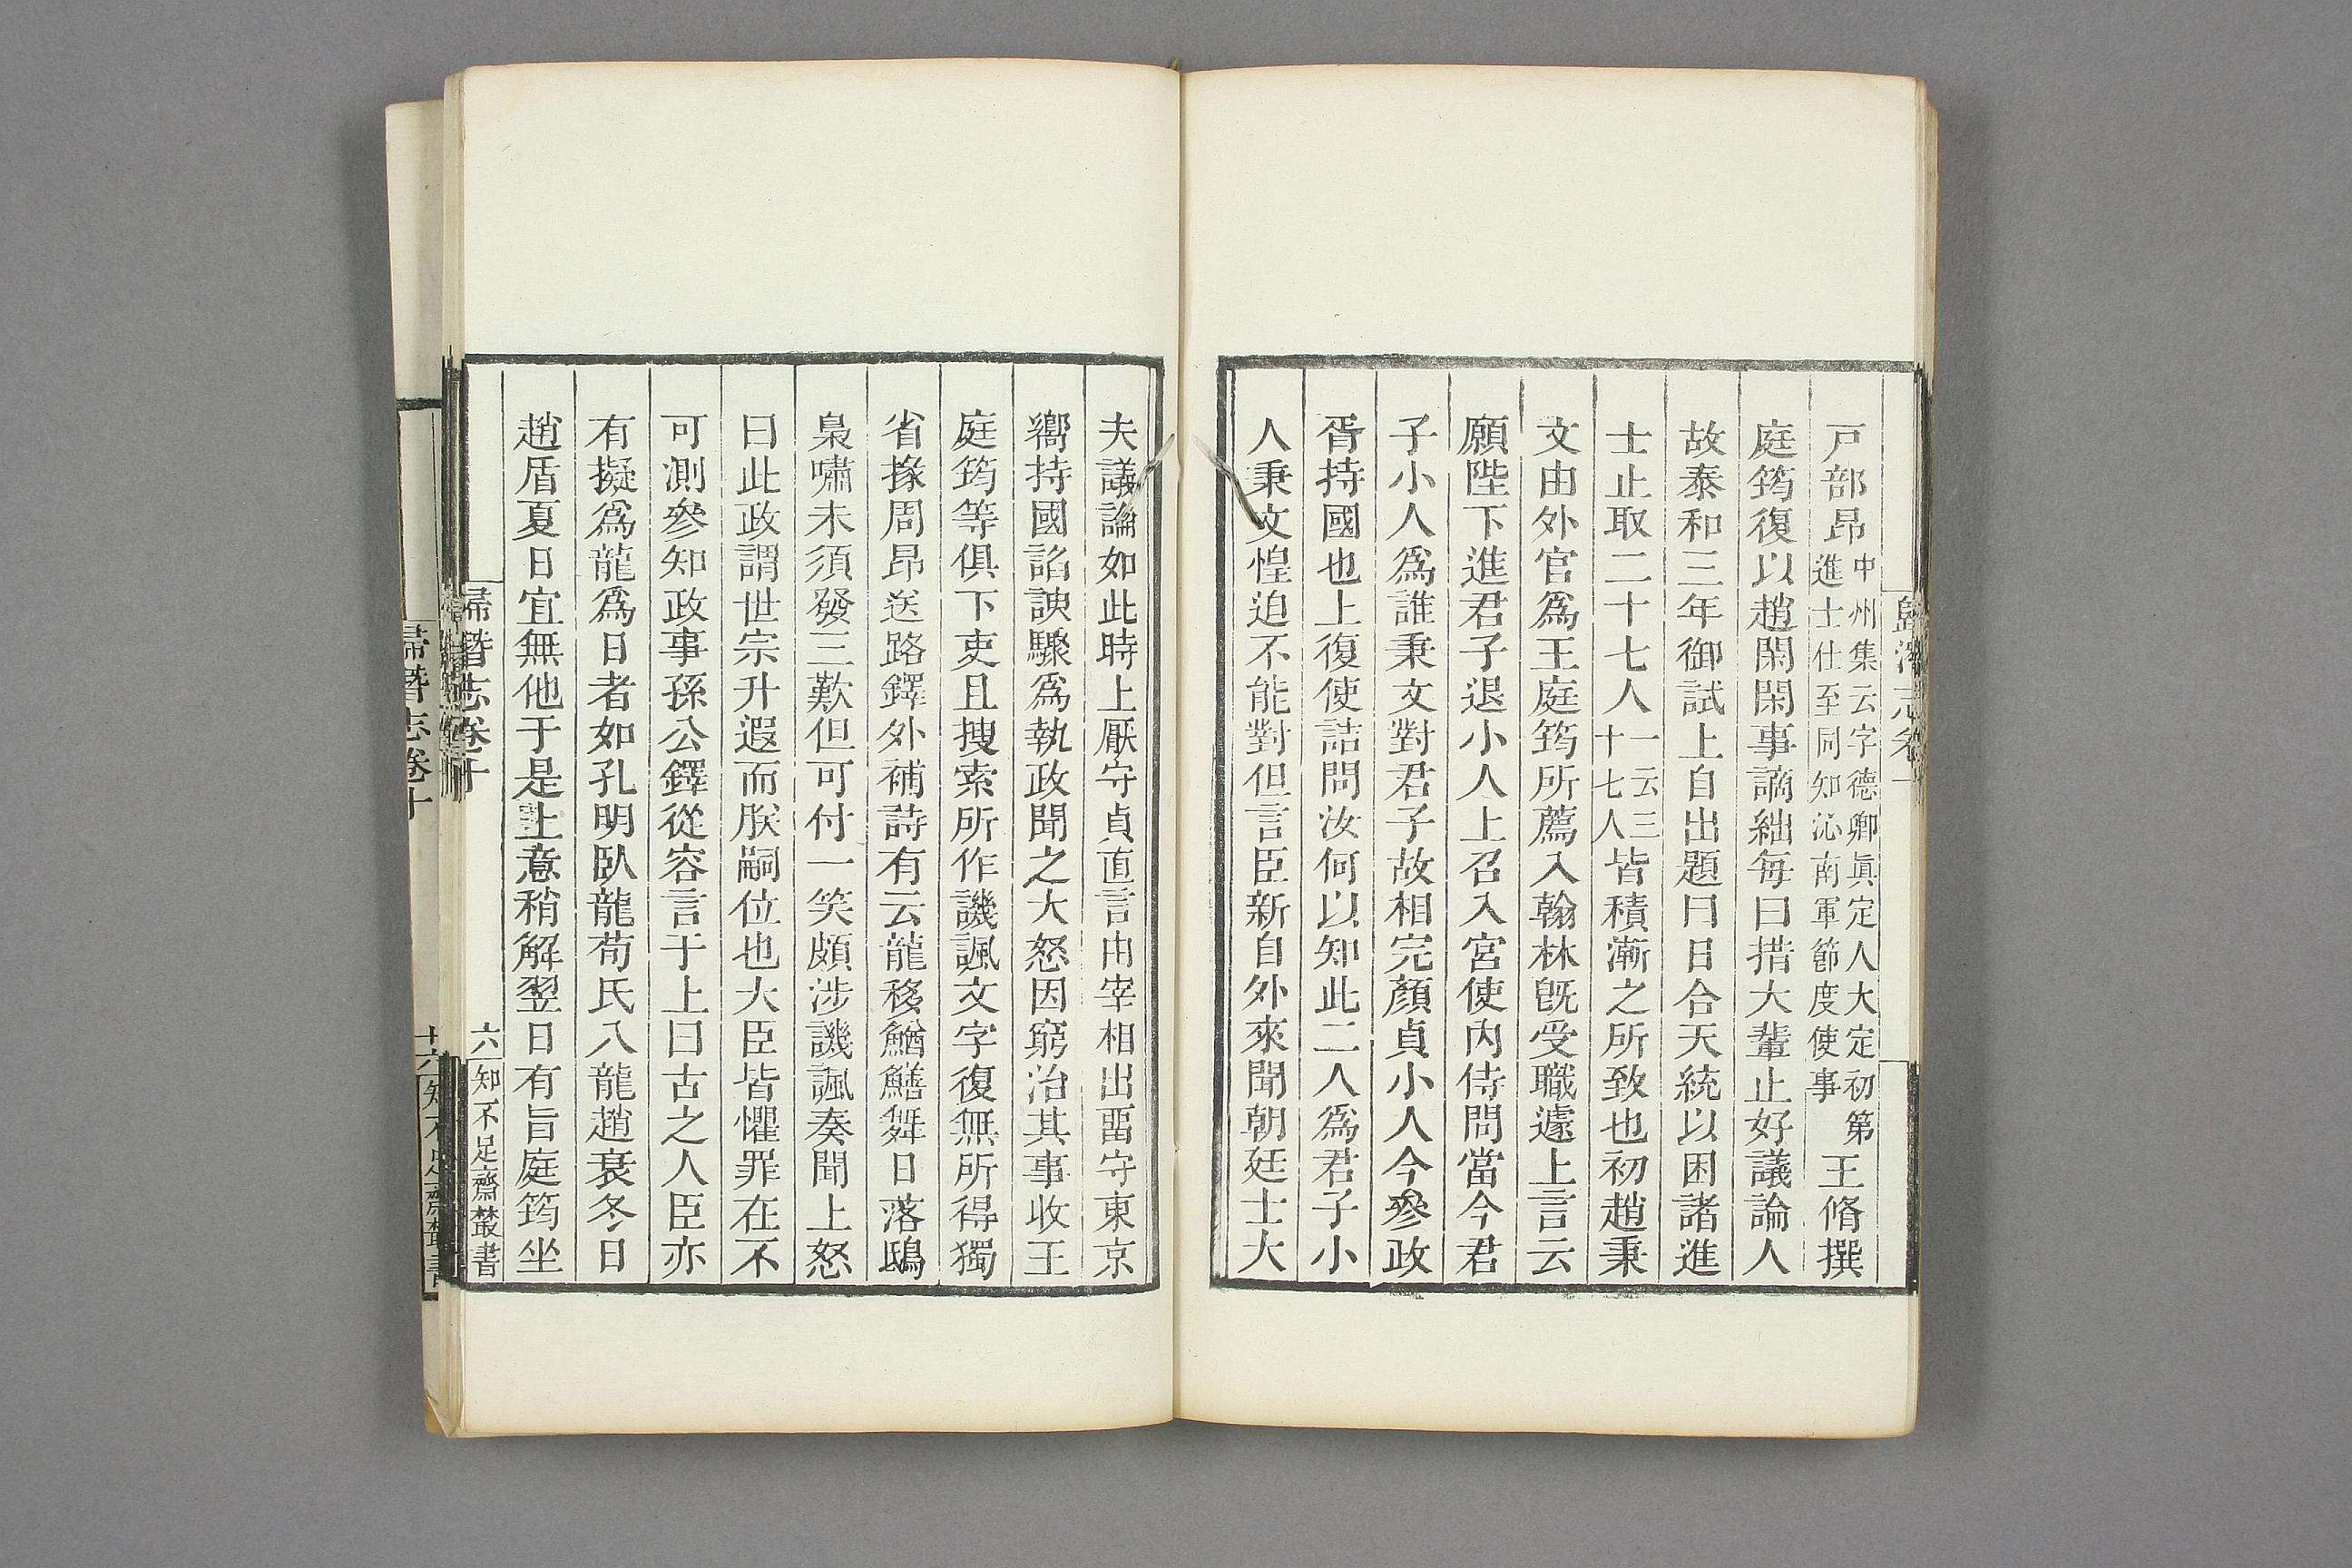 歸潛志卷十
戸部昂中州集云字德卿眞定人大定初第進士仕至同知沁南軍節度使事王脩撰
庭筠復以趙閑閑事謫絀每曰措大輩止好議論人
故泰和三年御試上自出題曰日合天統以困諸進
士止取二十七人一云三十七人皆積漸之所致也初趙秉
文由外官爲王庭筠所薦入翰林旣受職遽上言云
願陛下進君子退小人上召入宮使內侍問當今君
子小人爲誰秉文對君子故相完顏貞小人今參政
胥持國也上復使詰問汝何以知此二人爲君子小
人秉文惶迫不能對但言臣新自外來聞朝廷士大
夫議論如此時上厭守貞直言由宰相出畱守東京
嚮持國諂諛驟爲執政聞之大怒因窮治其事收王
庭筠等俱下吏且搜索所作譏諷文字復無所得獨
省掾周昂送路鐸外補詩有云龍移鰌鱔舞日落鴟
梟嘯未須發三歎但可付一笑頗涉譏諷奏聞上怒
曰此政謂世宗升遐而朕嗣位也大臣皆懼罪在不
可測參知政事孫公鐸從容言于上曰古之人臣亦
有擬爲龍爲日者如孔明臥龍荀氏八龍趙衰冬日
趙盾夏日宜無他于是上意稍解翌日有旨庭筠坐
歸潛志卷十 六 知不足齋叢書
歸潛志卷十 十六 知不足齋叢書